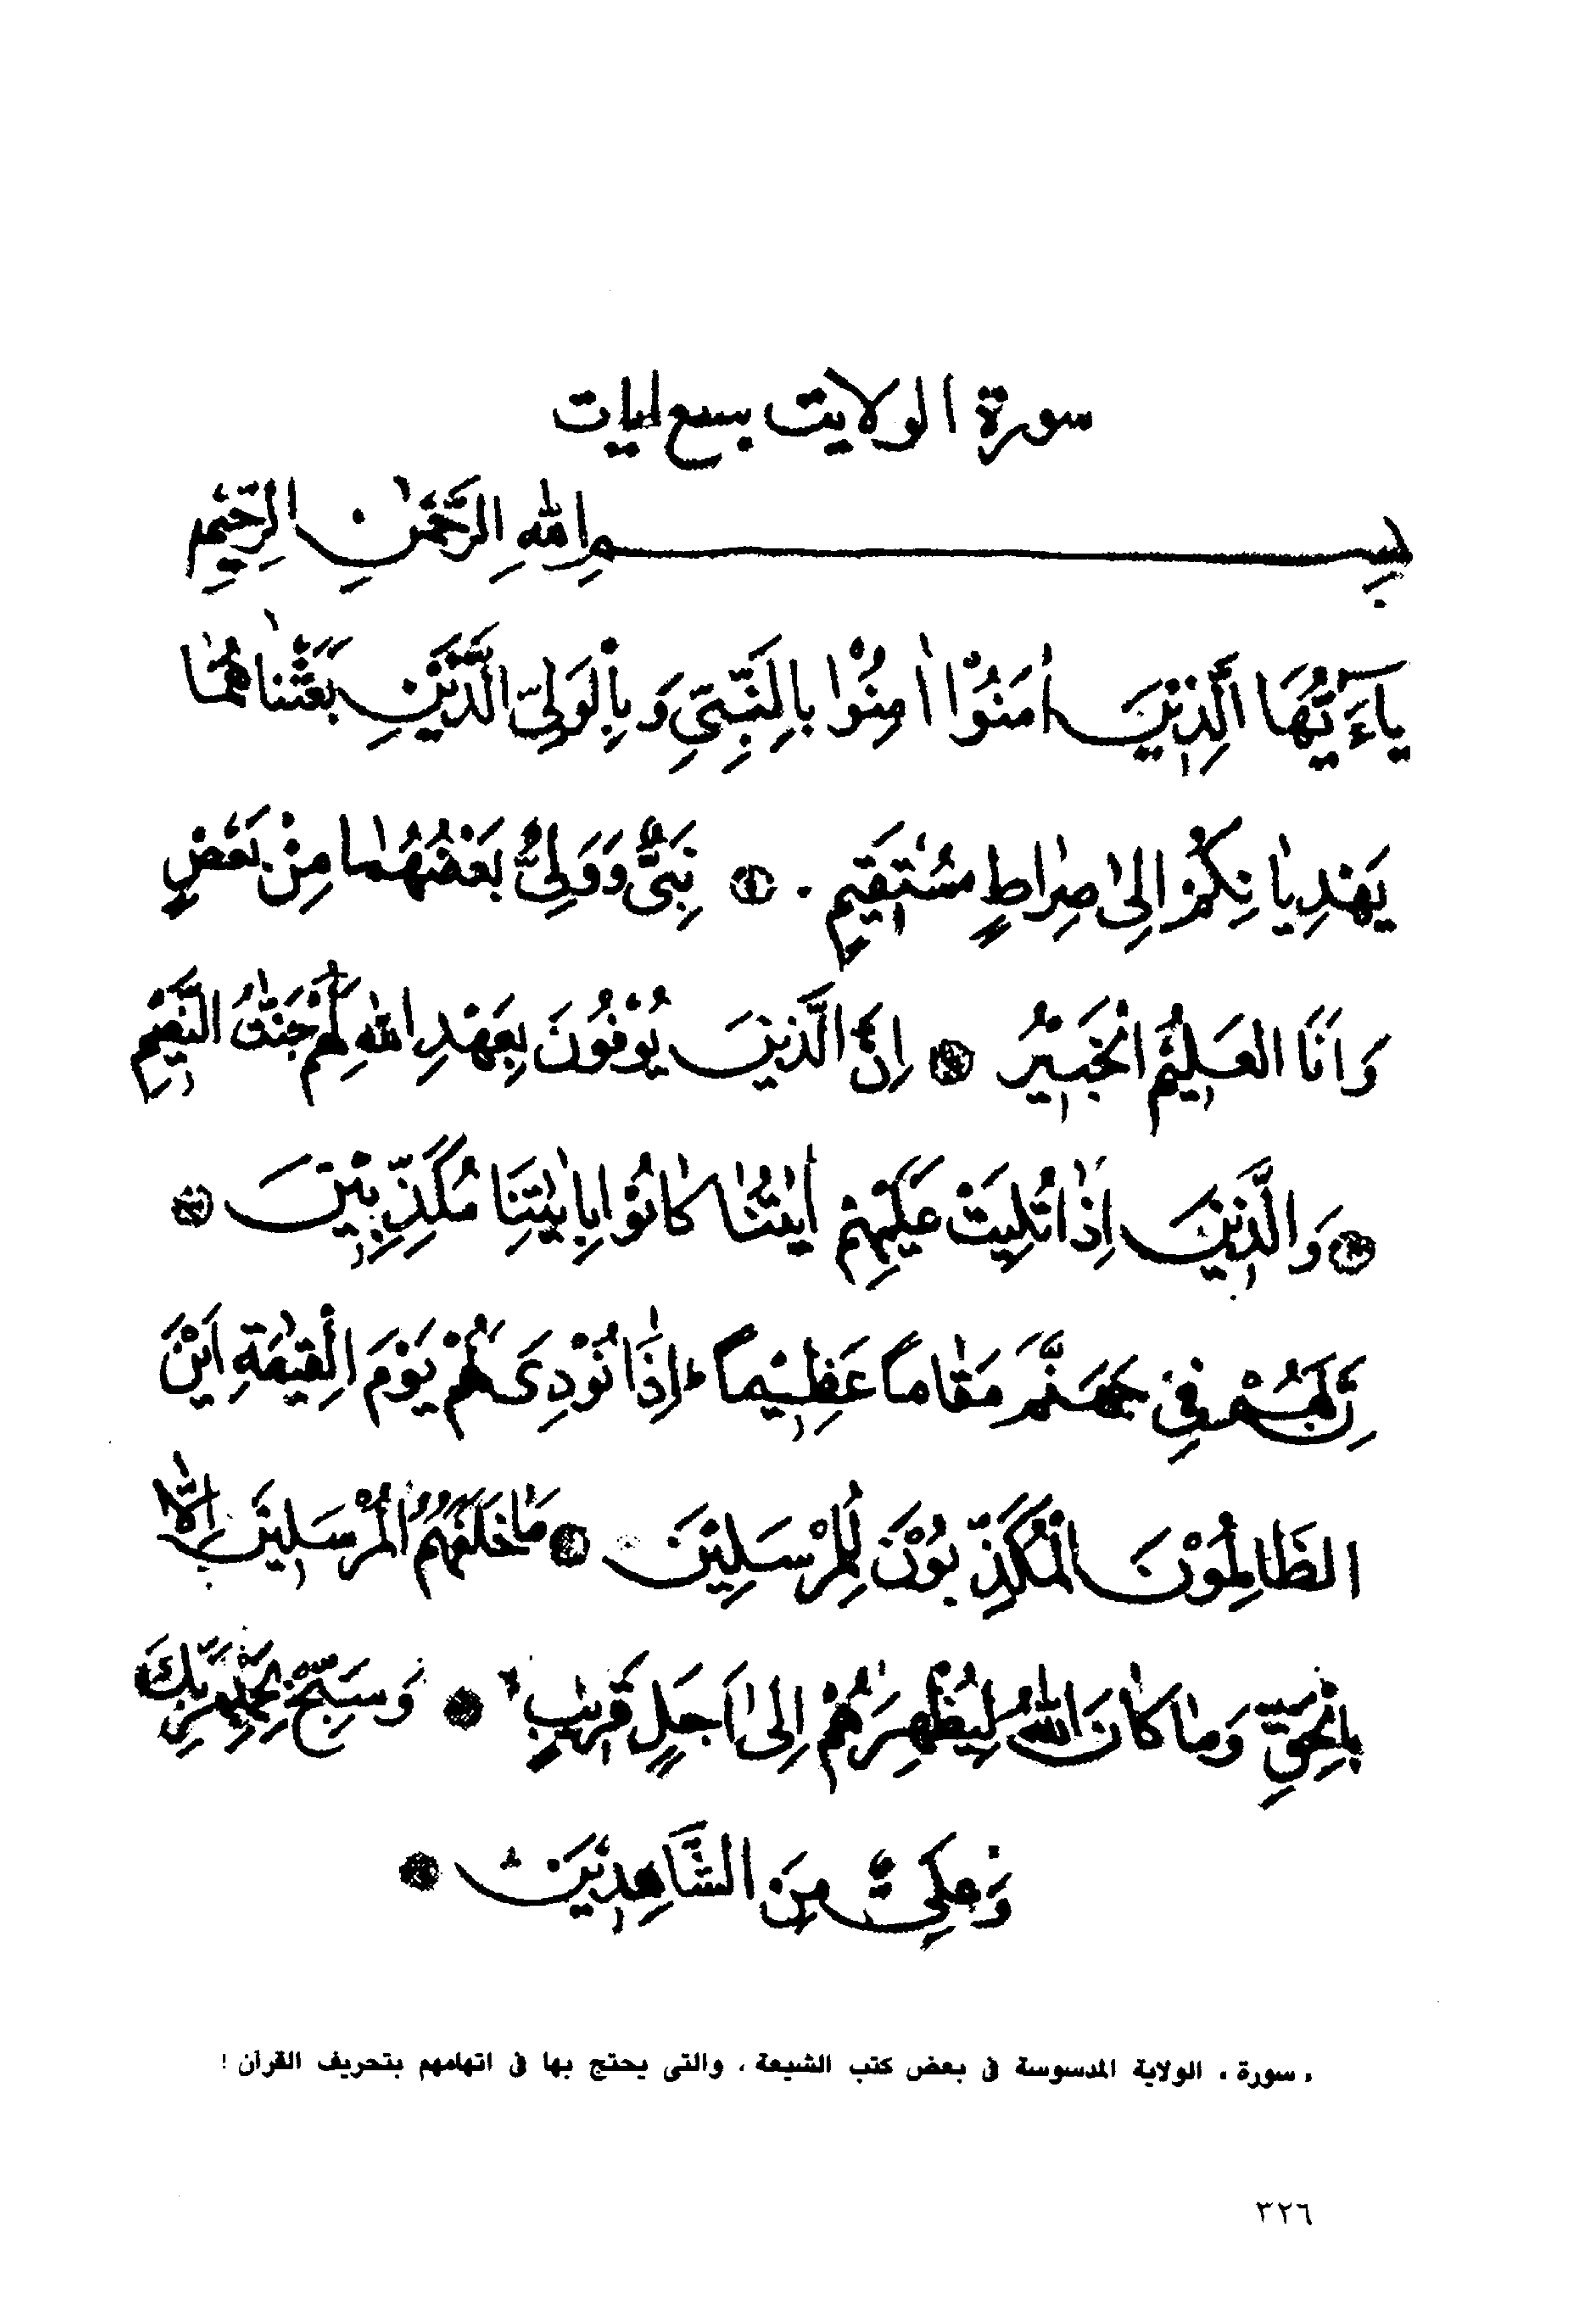 سورة الولايت بسبع ايات
بِسْمِ اللهِ الرَّحْمٰنِ الرَّحِيْمِ
يَاءَيُّهَا الَّذِيْنَ اٰمَنُوْا اٰمِنُوْا بِالنَّبِيِّ وَبِالْوَلِيِّ الَّذَيْنِ بَعَثْنٰاهُمَا
يَهْدِيٰانِكُمْ اِلىٰ صِرٰاطٍ مُسْتَقِيْمٍ . ١ نَبِيٌّ وَوَلِيٌّ بَعْضُهُمٰا مِنْ بَعْضٍ
وَاَنَا الْعَلِيْمُ الْخَبِيْرُ ٢ اِنَّ الَّذِيْنَ يُوْفُوْنَ بِعَهْدِ اللهِ لَهُمْ جَنّٰتُ النَّعِيْمِ
٣ وَالَّذِيْنَ اِذٰا تُلِيَتْ عَلَيْهِمْ اٰيٰتُنٰا كٰانُوْا بِاٰيٰتِنَا مُكَذِّبِيْنَ ٤
اِنَّ لَهُمْ فِيْ جَهَنَّمَ مَقٰاماً عَظِيْماً اِذٰا نُوْدِىَ لَهُمْ يَوْمَ الْقِيٰمَةِ اَيْنَ
الظّٰالِمُوْنَ الْمُكَذِّبُوْنَ لِلْمُرْسَلِيْنَ ٥ مٰا خَلَفَهُمُ الْمُرْسَلِيْنَ اِلّٰا
بِالْحَقِّ وَمٰا كٰانَ اللهُ لِيُظْهِرَهُمْ اِلىٰ اَجَلٍ قَرِيْبٍ ٦ وَسَبِّحْ بِحَمْدِ رَبِّكَ
وَعَلِيٌّ مِنَ الشّٰاهِدِيْنَ ٧
« سورة » الولاية المدسوسة فى بعض كتب الشيعة ، والتى يحتج بها فى اتهامهم بتحريف القرآن !
٣٢٦